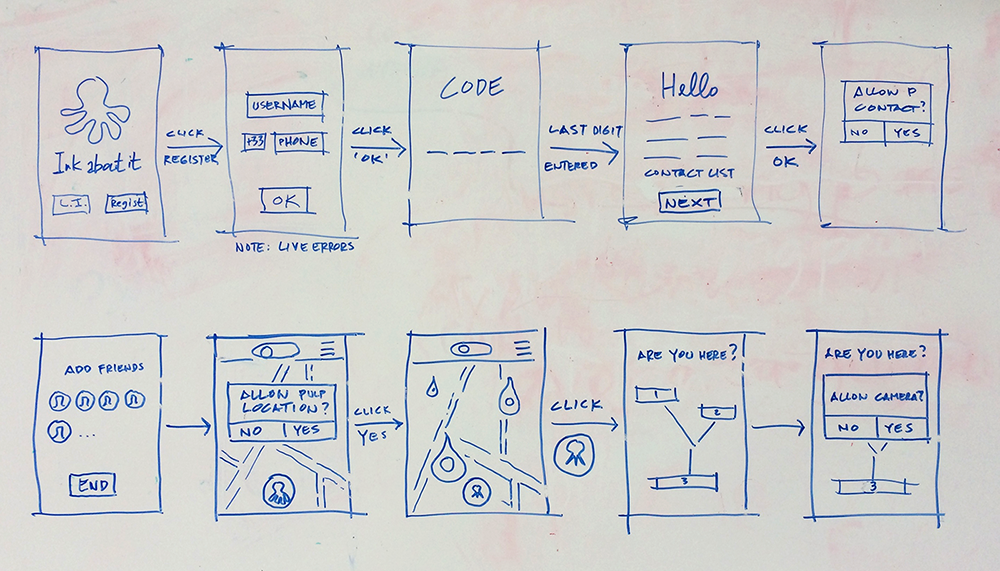 Ink about it
L.I. Regist
CLICK
REGISTER
USERNAME
+33 PHONE
OK
NOTE: LIVE ERRORS
CLICK
'OK'
CODE
LAST DIGIT
ENTERED
Hello
CONTACT LIST
NEXT
CLICK
OK
ALLOW P
CONTACT?
NO YES
ADD FRIENDS
...
END
ALLOW PULP
LOCATION?
NO YES
CLICK
YES
CLICK
ARE YOU HERE?
1
2
3
ARE YOU HERE?
ALLOW CAMERA?
NO YES
3